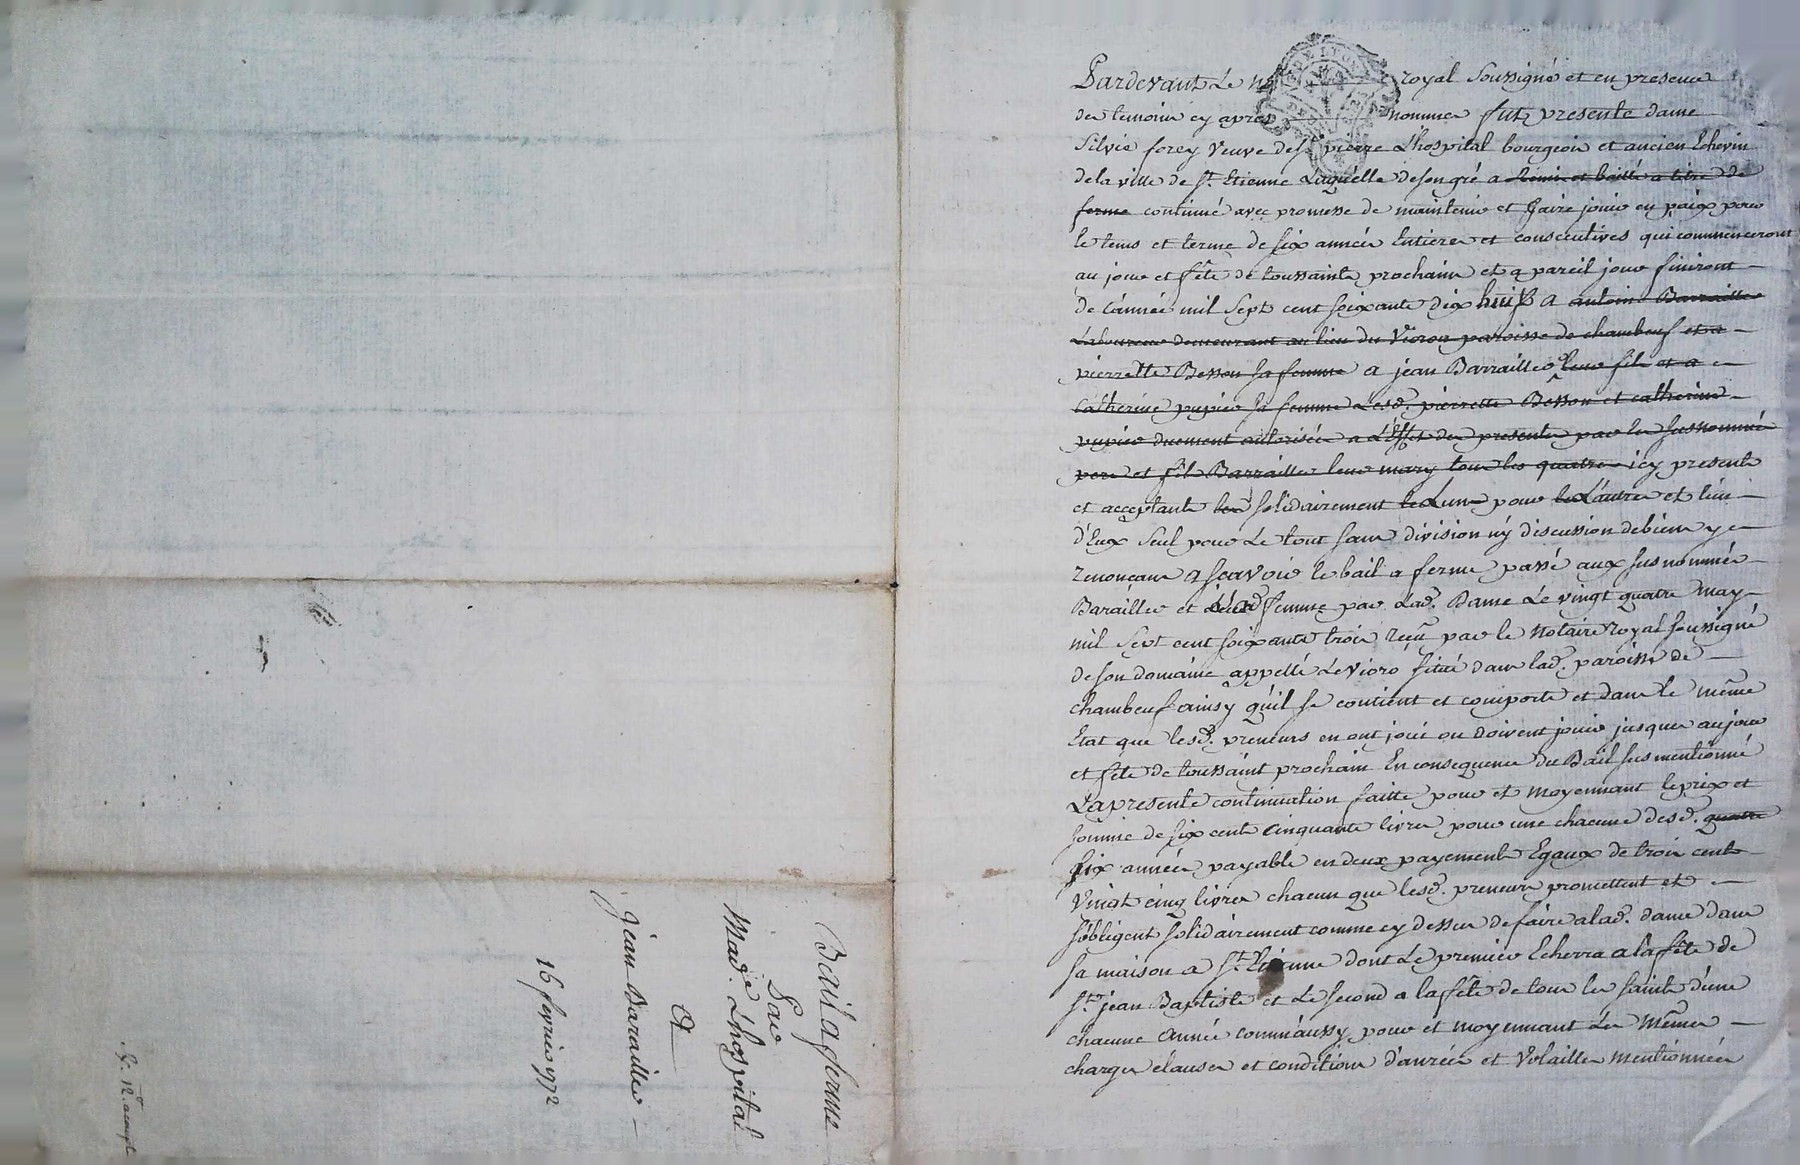 Pardevant Le royal soussigné et en presence
des temoins cy apres nommes fut presente dame
Silvie forey Veuve de sr. pierre Lhospital bourgeois et ancien Echevin
de la ville de St. Etienne Laquelle de son gré a remis et baillé a titre de
ferme continué avec promesse de maintenir et faire jouir en paix pour
le tems et terme de six années Entieres et consecutives qui commenceront
au jour et fête de toussaints prochain et a pareil jour finiront
de L'année mil Sept cent soixante dix huit a antoine Barrailler
Laboureur demeurant au lieu du Vioron paroisse de chambeuf et a
pierrette Besson sa femme a jean Barrailler leur fils et a
Catherine pupier sa femme Lesd. pierrette Besson et catherine
pupier duement autorisées a L'effet des presentes par les susnommés
pere et fils Barrailler leur mary tous les quatre icy presents
et acceptants solidairement le Lun pour le L'autre et l'un
d'Eux seul pour Le tout sans division ny discussion de biens y
renonçant a sçavoir le bail a ferme passé aux susnommés
Barailler et femme par Lad. Dame Le vingt quatre may
mil Sept cent soixante trois reçu par le Notaire royal soussigné
de son domaine appellé Le vioro situé dans lad. paroisse de
chambeuf ainsy qu'il se contient et comporte et dans le même
Etat que lesd. preneurs en ont joui ou doivent jouir jusques au jour
et fête de toussaint prochain En consequence du Bail sus mentionné
La presente continuation faitte pour et moyennant le prix et
somme de six cent Cinquante livres pour une chacune desd. quatre
six années payable en deux payements Egaux de trois cent
Vingt cinq livres chacun que lesd. preneurs promettent et
s'obligent solidairement comme cy dessus de faire a lad. dame dans
sa maison a St. Etienne dont Le premier Echerra a la fête de
St. jean Baptiste et Le second a la fête de tous les saints d'une
chacune année comm'aussy pour et moyennant Les Mêmes
charges clauses et conditions danrées et Volailles mentionnées
Bail a ferme
Par
Made. Lhospital
A
Jean Barailler
16 fevrier 1772